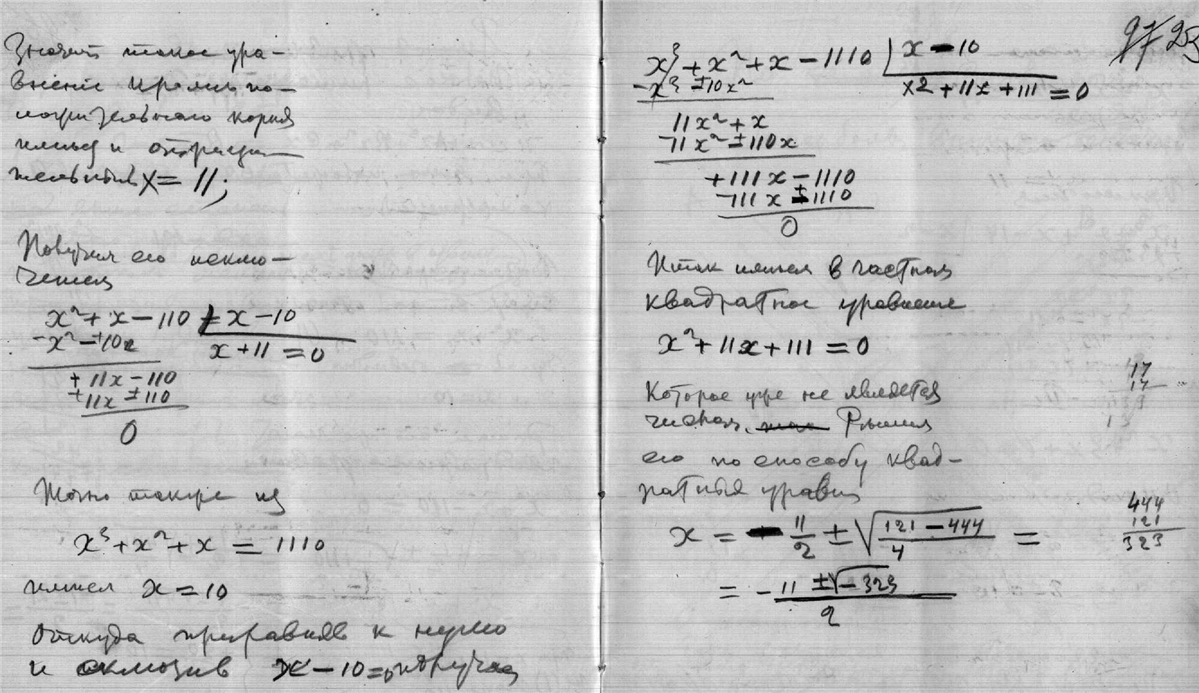 Значит такое ура-
внение кроме по-
ложительного корня
имеет и отрица-
тельный x = 11;
Получим его исклю-
чением
x² + x − 110 = x − 10
−x² − + 10x x + 11 = 0
+ 11x − 110
± 11x ± 110
0
Точно также из
x³ + x² + x = 1110
имеем x = 10
Откуда приравняв к нулю
и x − 10 = 0, получаем
97 25
x³ + x² + x − 1110 | x − 10
−x³ ± 10x² x2 + 11x + 111 = 0
11x² + x
−11x² ± 110x
+ 111x − 1110
−111x ± 1110
0
Итак имеем в частном
квадратное уравнение
x² + 11x + 111 = 0
Которое уже не является
числом. Решим
его по способу квад-
ратных уравн
x = − 11/2 ± √(121 − 444)/4 =
= − 11 ± √−323 / 2
444
121
323